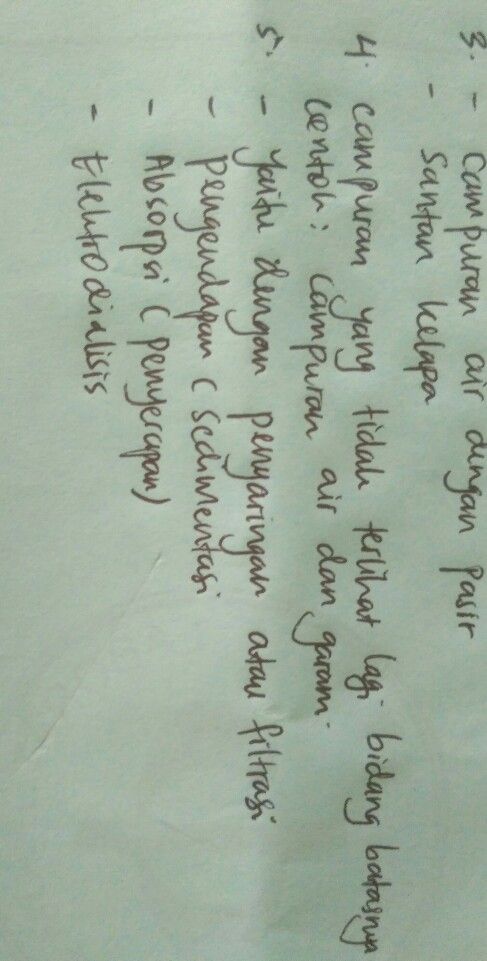 3. - Campuran air dengan pasir
- Santan kelapa
4. campuran yang tidak terlihat lagi bidang batasnya
contoh: campuran air dan garam.
5. - yaitu dengan penyaringan atau filtrasi
- pengendapan (sedimentasi
- Absorpsi (penyerapan)
- Elektrodialisis